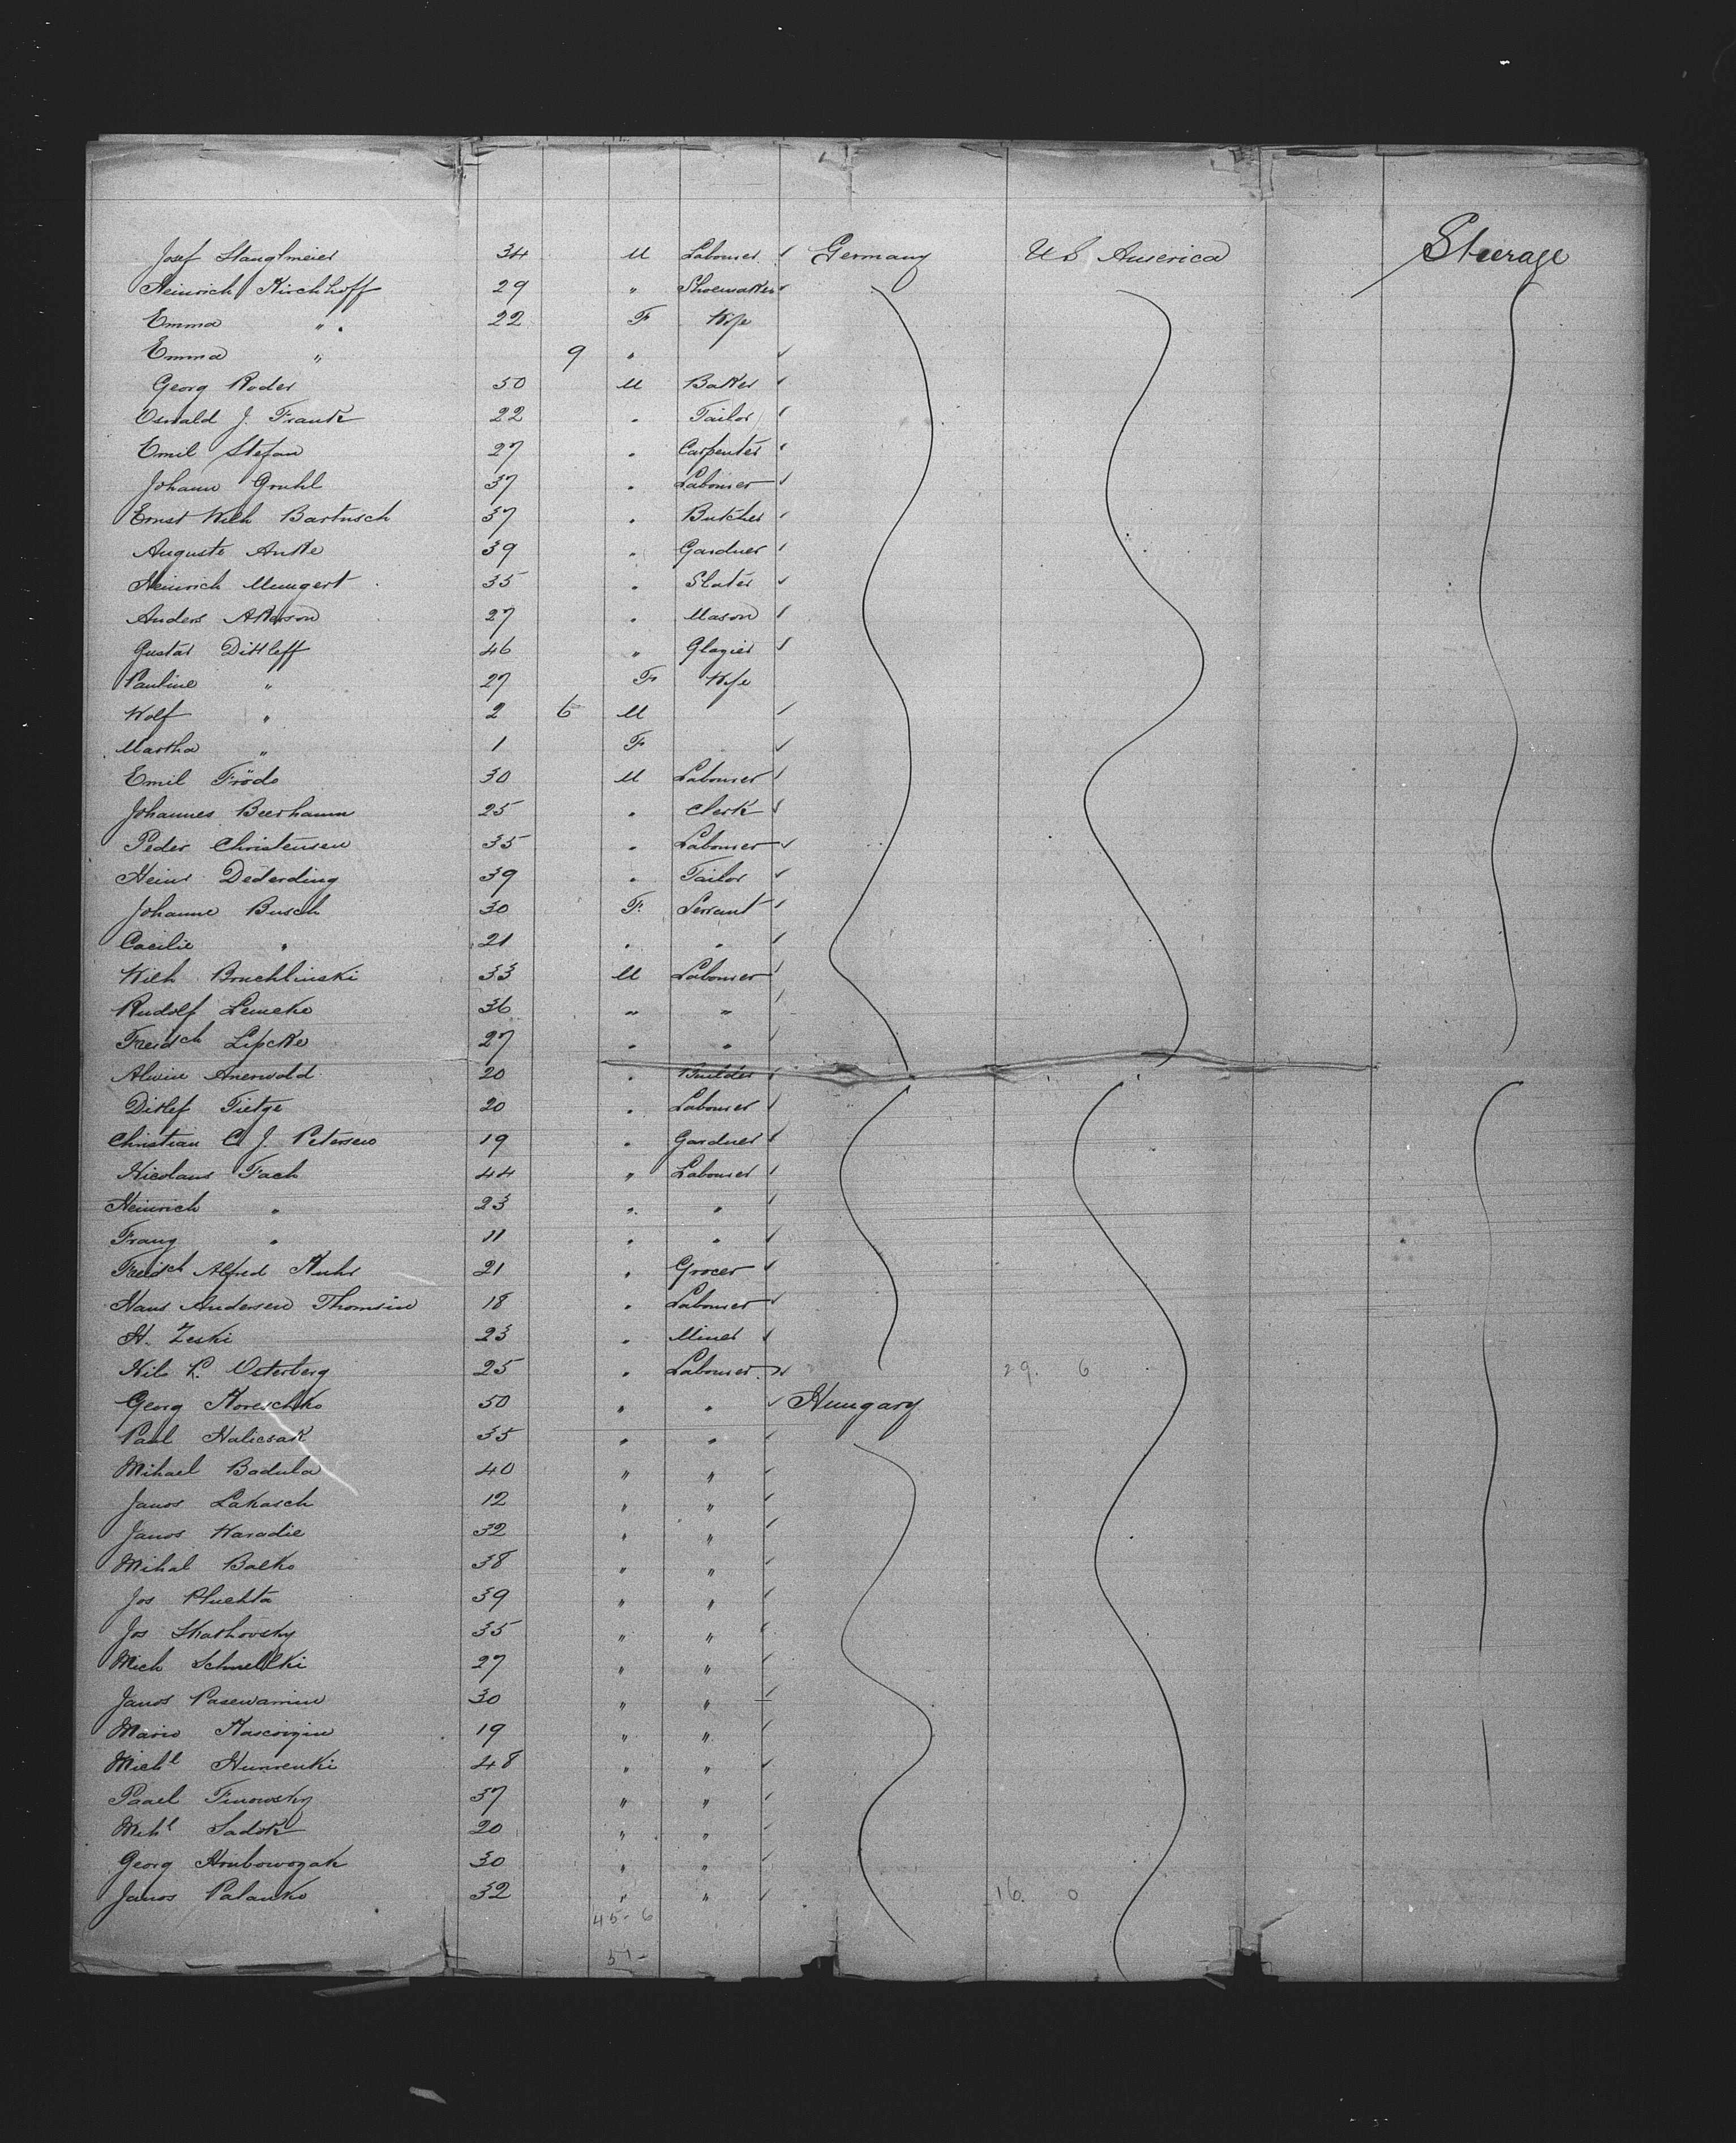 Josef Stanglmeier 34 M Labourer ✓ Germany U S America Steerage
Heinrich Kirchhoff 29 " Shoemaker ✓
Emma " 22 F Wife
Emma " 9 " ✓
Georg Roder 50 M Baker ✓
Oswald J. Frank 22 " Tailor ✓
Emil Stefan 27 " Carpenter ✓
Johann Gruhl 37 " Labourer ✓
Ernst Wilh Bartusch 37 " Butcher ✓
Auguste Anke 39 " Gardner ✓
Heinrich Mungert 35 " Slater ✓
Anders Akerson 27 " Mason ✓
Gustav Dittleff 46 " Glazier ✓
Pauline " 27 F Wife
Wolf " 2 6 M ✓
Martha " 1 F ✓
Emil Frödo 30 M Labourer ✓
Johannes Beerhaum 25 " Clerk ✓
Peder Christensen 35 " Labourer ✓
Heinr Dederding 39 " Tailor ✓
Johanne Busch 30 F. Servant ✓
Cacilie " 21 " " ✓
Wilh Bruchlinski 33 M Labourer ✓
Rudolf Lemcke 36 " " ✓
Friedch Lipcke 27 " " ✓
Alwin Anerwald 20 " Builder ✓
Ditlef Tietge 20 " Labourer ✓
Christian C J. Petersen 19 " Gardner ✓
Nicolaus Fach 44 " Labourer ✓
Heinrich " 23 " " ✓
Franz " 11 " " ✓
Friedch Alfred Kuhr 21 " Grocer ✓
Hans Andersen Thomsen 18 " Labourer ✓
H. Zeski 23 " Miner ✓
Nils P. Osterberg 25 " Labourer ✓ 29. 6
Georg Koreschko 50 " " ✓ Hungary
Paul Halicsak 35 " " ✓
Mihael Badula 40 " " ✓
Janos Lakasch 12 " " ✓
Janos Waradie 32 " " ✓
Mihal Balko 38 " " ✓
Jos Pluchta 39 " " ✓
Jos Skathovsky 35 " " ✓
Mich Schmellki 27 " " ✓
Janos 30 " " ✓
Mario 19 " " ✓
Michl Humenki 48 " " ✓
Paael Finowsky 37 " " ✓
Mihl Sadok 20 " " ✓
Georg Hrubowozak 30 " " ✓
Janos Palanko 32 " " ✓ 16. 0
45-6
51-